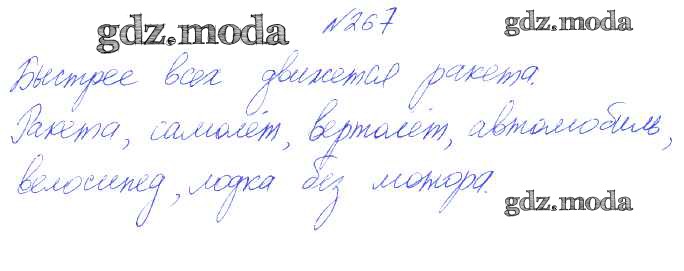 gdz.moda №267 gdz.moda
Быстрее всех движется ракета.
Ракета, самолёт, вертолёт, автомобиль,
велосипед, лодка без мотора.
gdz.moda